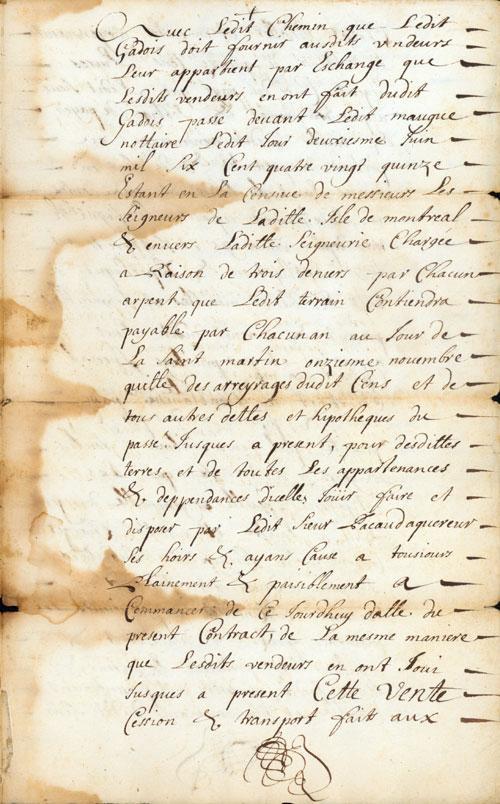 Avec Ledit Chemin que Ledit
Gadois doit fournir ausdits vendeurs
Leur appartient par Eschange que
Lesdits vendeurs en ont fait dudit
Gadois passé devant Ledit maugue
nottaire Ledit Jour deuxiesme Juin
mil six Cent quatre vingt quinze
Estant en La Censive de messieurs Les
seigneurs de Laditte Isle de montreal
& envers Laditte seigneurie Chargée
a Raison de trois deniers par Chacun
arpent que Ledit terrain Contiendra
payable par Chacun an au Jour de
La saint martin onziesme novembre
quitte des arreyrages dudit Cens et de
tous autres dettes et hipotheques du
passé Jusques a present, pour desdittes
terres et de toutes Les appartenances
& deppendances dicelle, Joüir faire et
disposer par Ledit sieur Pacaud aquereur
ses hoirs & ayans Cause a tousiours
Plainement & paisiblement a
Commancer de Ce Jourdhuy datte du
present Contract, de La mesme maniere
que Lesdits vendeurs en ont Joui
Jusques a present Cette Vente
Cession & transport fait aux